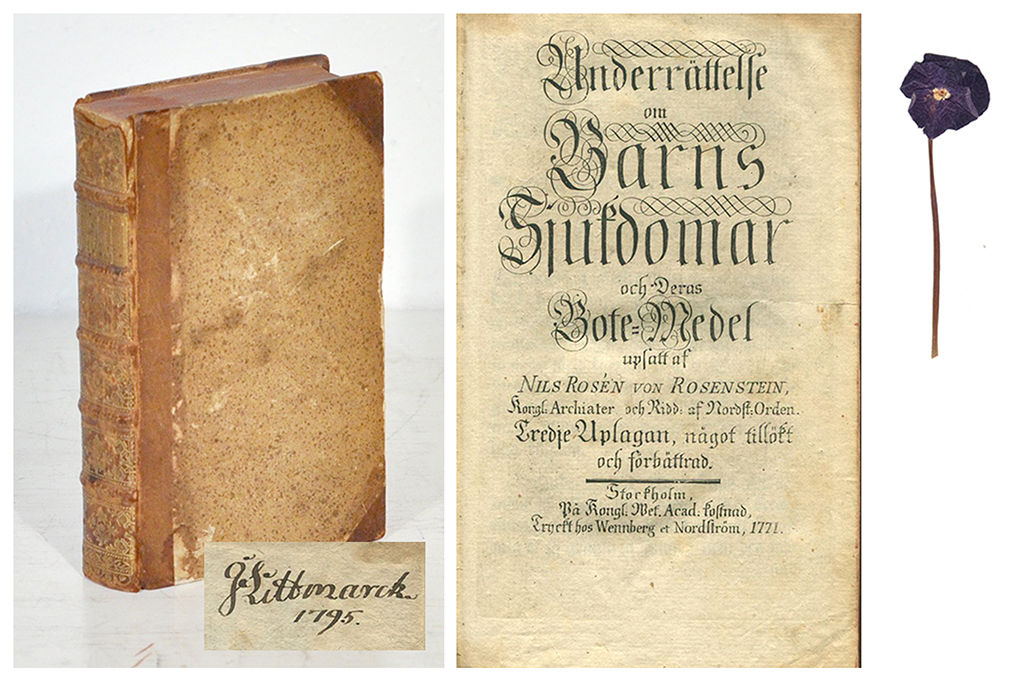 J. Kittmarck
1795.
Underrättelse
om
Barns
Sjukdomar
och Deras
Bote=Medel
upsatt af
NILS ROSÉN VON ROSENSTEIN,
Kongl: Archiater och Ridd: af Nordst: Orden.
Tredje Uplagan, något tillökt
och förbättrad.
Stockholm,
På Kongl. Wet. Acad. kostnad,
Tryckt hos Wennberg et Nordström, 1771.